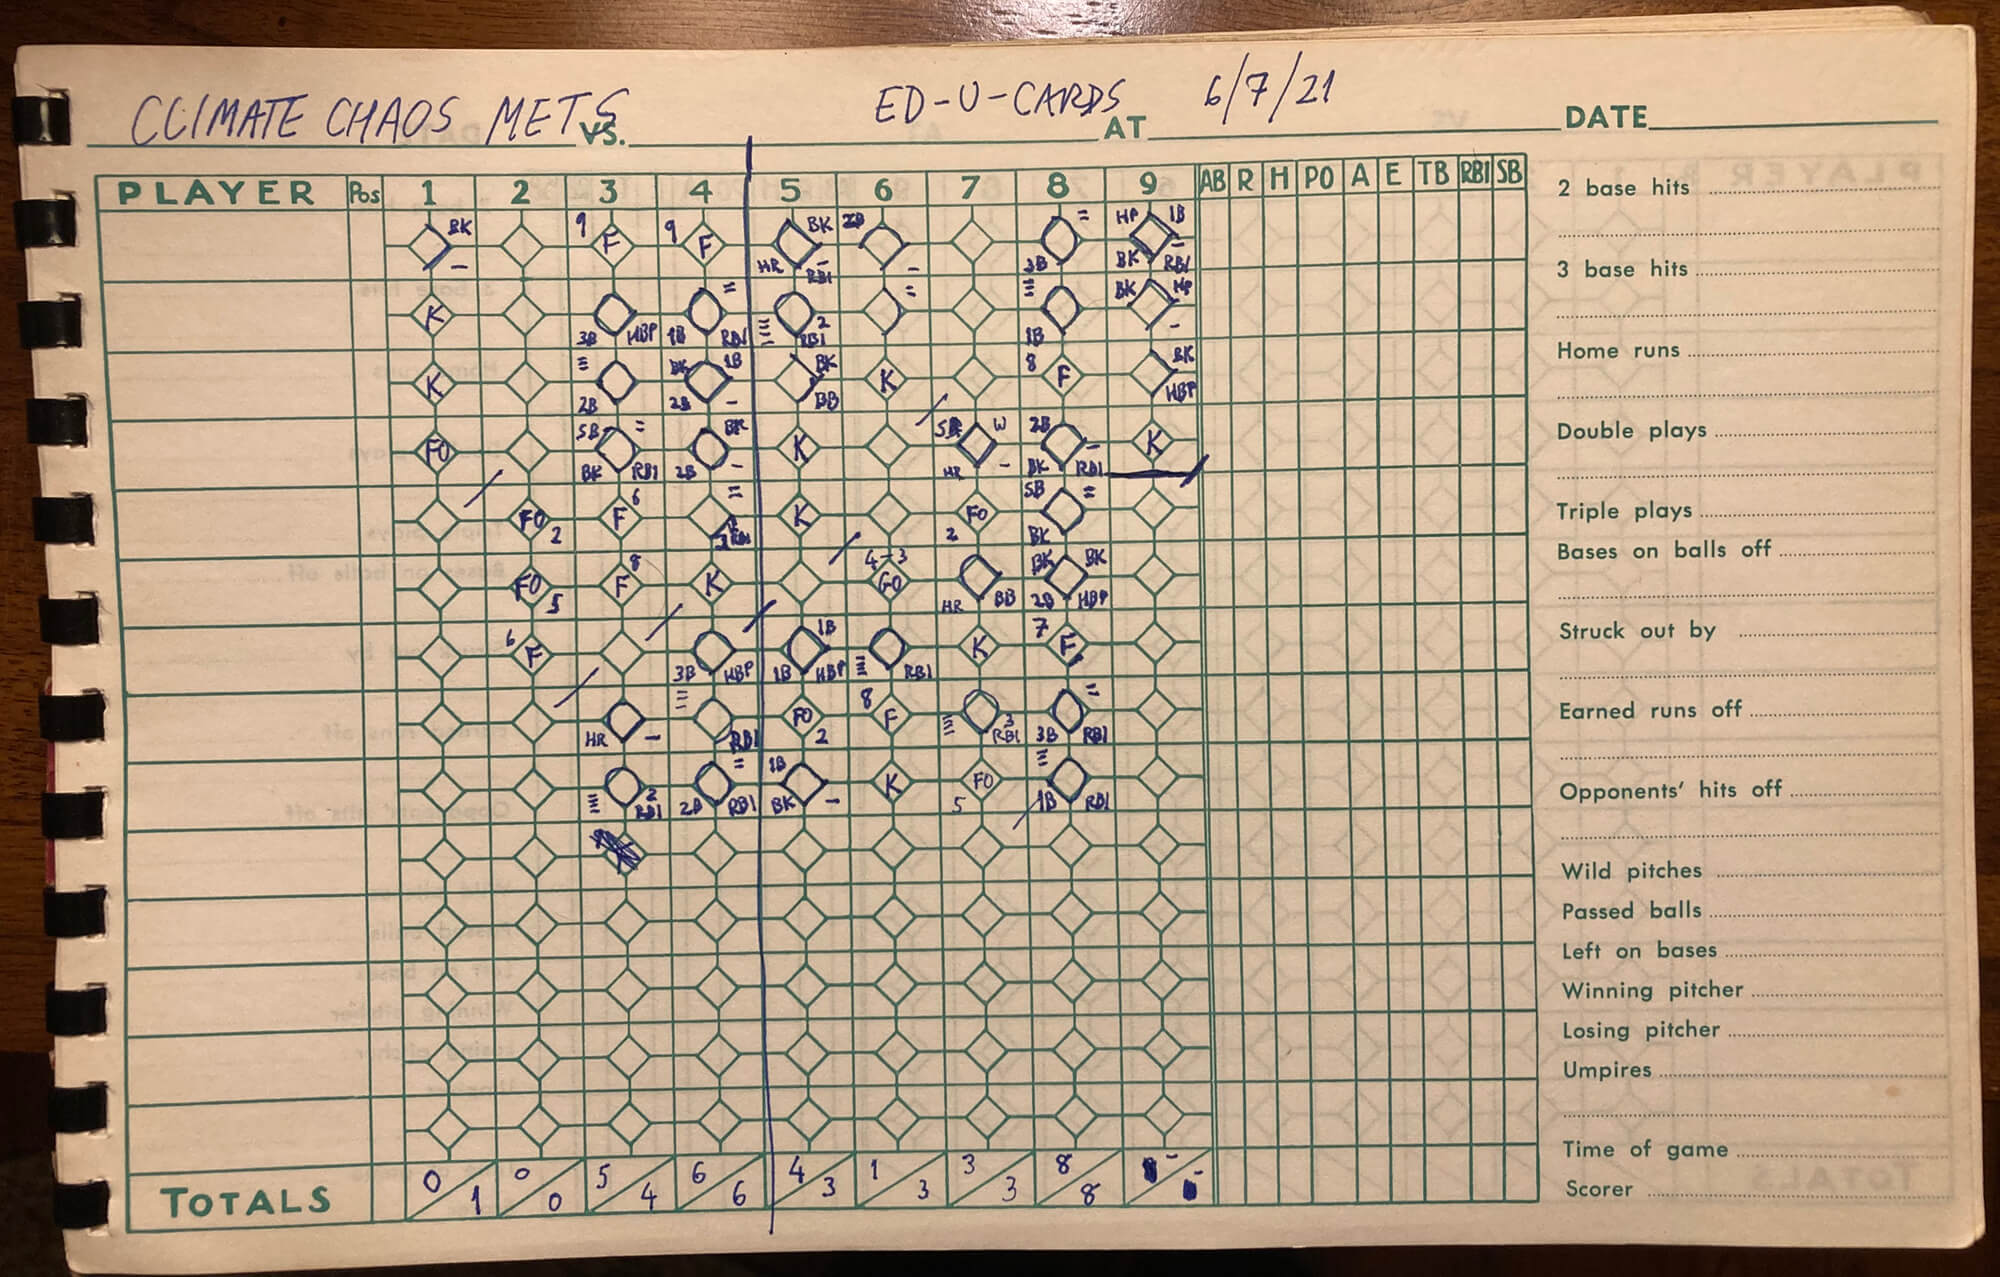 CLIMATE CHAOS METS VS. ED-U-CARDS AT 6/7/21 DATE
PLAYER Pos 1 2 3 4 5 6 7 8 9 AB R H PO A E TB RBI SB
BK 9 F 9 F BK HR RBI 2B 3B HP 1B BK RBI
K 3B HBP 1B RBI 2 RBI 1B BK HP
K 2B BK 1B 2B BK BB K 8 F BK HBP
FO SB BK RBI BK 2B K W HR 2B BK RBI K
FO 2 F 6 RBI K FO 2 SB BK
FO 5 F 8 K 4-3 GO HR BB BK BK 2B HBP
6 F 3B HBP 1B 1B HBP RBI K 7 F
HR RBI FO 2 8 F 3 RBI 3B RBI
2 RBI 2B RBI 1B BK K FO 5 1B RBI
TOTALS 0/1 0/0 5/4 6/6 4/3 1/3 3/3 8/8
2 base hits
3 base hits
Home runs
Double plays
Triple plays
Bases on balls off
Struck out by
Earned runs off
Opponents' hits off
Wild pitches
Passed balls
Left on bases
Winning pitcher
Losing pitcher
Umpires
Time of game
Scorer